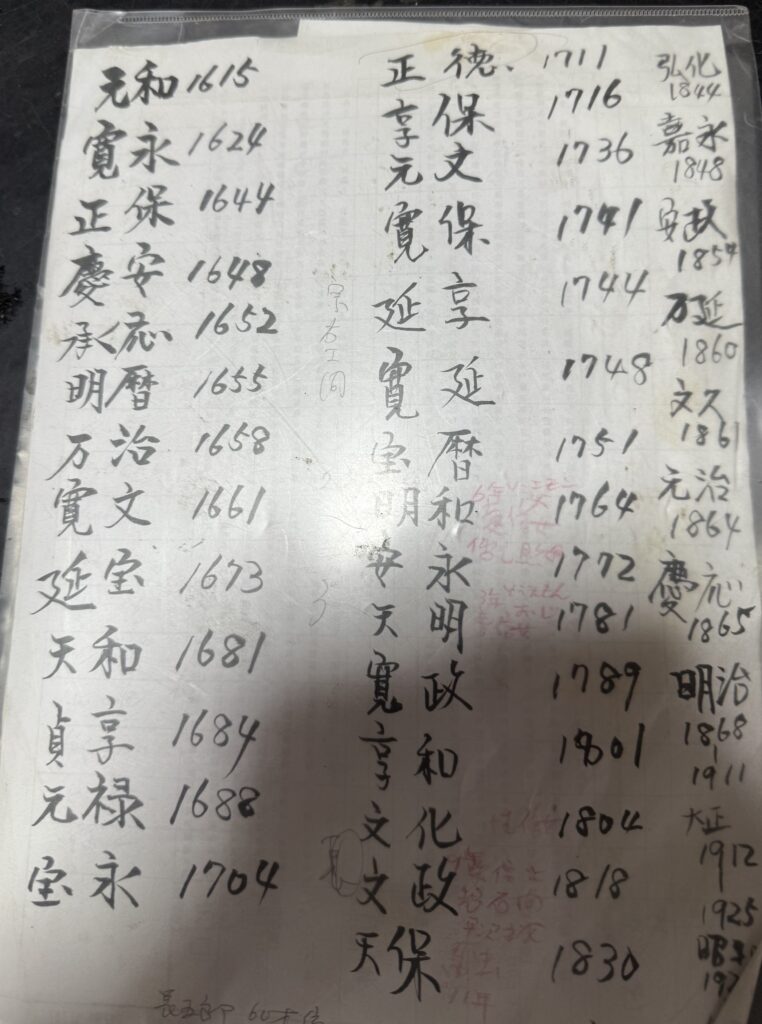 元和 1615
寛永 1624
正保 1644
慶安 1648
承応 1652
明暦 1655
万治 1658
寛文 1661
延宝 1673
天和 1681
貞享 1684
元禄 1688
宝永 1704
正徳 1711
享保 1716
元文 1736
寛保 1741
延享 1744
寛延 1748
宝暦 1751
明和 1764
安永 1772
天明 1781
寛政 1789
享和 1801
文化 1804
文政 1818
天保 1830
弘化
1844
嘉永
1848
安政
1854
万延
1860
文久
1861
元治
1864
慶応
1865
明治
1868
|
1911
大正
1912
1925
昭和